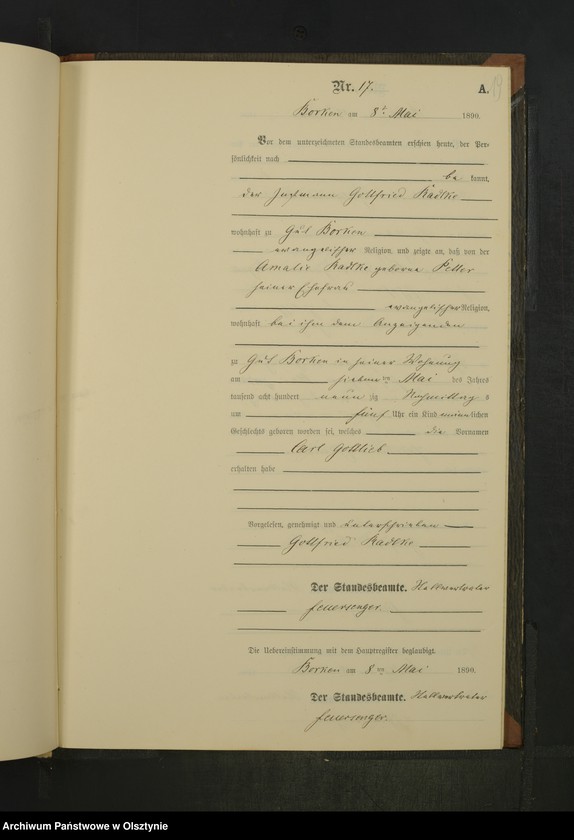 Nr. 17.
A. 19
Borken am 8t Mai 1890.
Vor dem unterzeichneten Standesbeamten erschien heute, der Per-
sönlichkeit nach
be kannt,
der Instmann Gottfried Radtke
wohnhaft zu Gut Borken
evangelischer Religion, und zeigte an, daß von der
Amalie Radtke geborne
seiner Ehefrau
evangelischer Religion,
wohnhaft bei ihm dem Anzeigenden
zu Gut Borken in seiner Wohnung
am siebenten Mai des Jahres
tausend acht hundert neunzig Nachmittags
um fünf Uhr ein Kind männlichen
Geschlechts geboren worden sei, welches die Vornamen
Carl Gottlieb
erhalten habe
Vorgelesen, genehmigt und unterschrieben
Gottfried Radtke
Der Standesbeamte.
Feuersenger.
Die Uebereinstimmung mit dem Hauptregister beglaubigt.
Borken am 8ten Mai 1890.
Der Standesbeamte.
Feuersenger.
Archiwum Państwowe w Olsztynie